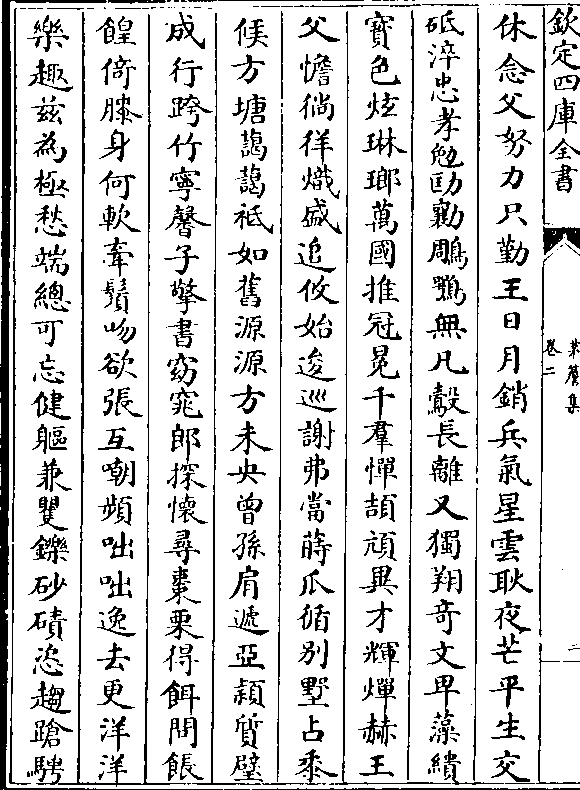 欽定四庫全書
卷二
二
休念父努力只勤王日月銷兵氣星雲耿夜芒平生交
砥淬忠孝勉劻勷鵰鶚無凡鷇長離又獨翔奇文卑藻繢
寶色炫琳瑯萬國推冠冕千羣憚頡頏異才輝燀赫王
父憺徜徉熾盛追攸始逡巡謝弗當蒔瓜循別墅占黍
候方塘藹藹祗如舊源源方未央曾孫肩遞亞穎質璧
成行跨竹寧馨子擎書窈窕郎探懷尋棗栗得餌問餦
餭倚膝身何軟牽鬚吻欲張互嘲頻咄咄逸去更洋洋
樂趣茲為極愁端總可忘健軀兼矍鑠砂磧恣趨蹌騁